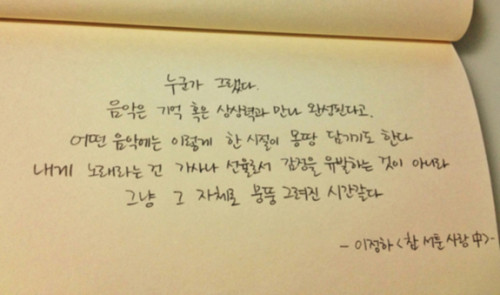 누군가 그랬다.
음악은 기억 혹은 상상력과 만나 완성된다고.
어떤 음악에는 이렇게 한 시절이 몽땅 담기기도 한다
내게 노래라는 건 가사나 선율로서 감정을 유발하는 것이 아니라
그냥 그 자체로 뭉뚱그려진 시간같다
- 이정하 <참 서툰 사랑 中> -